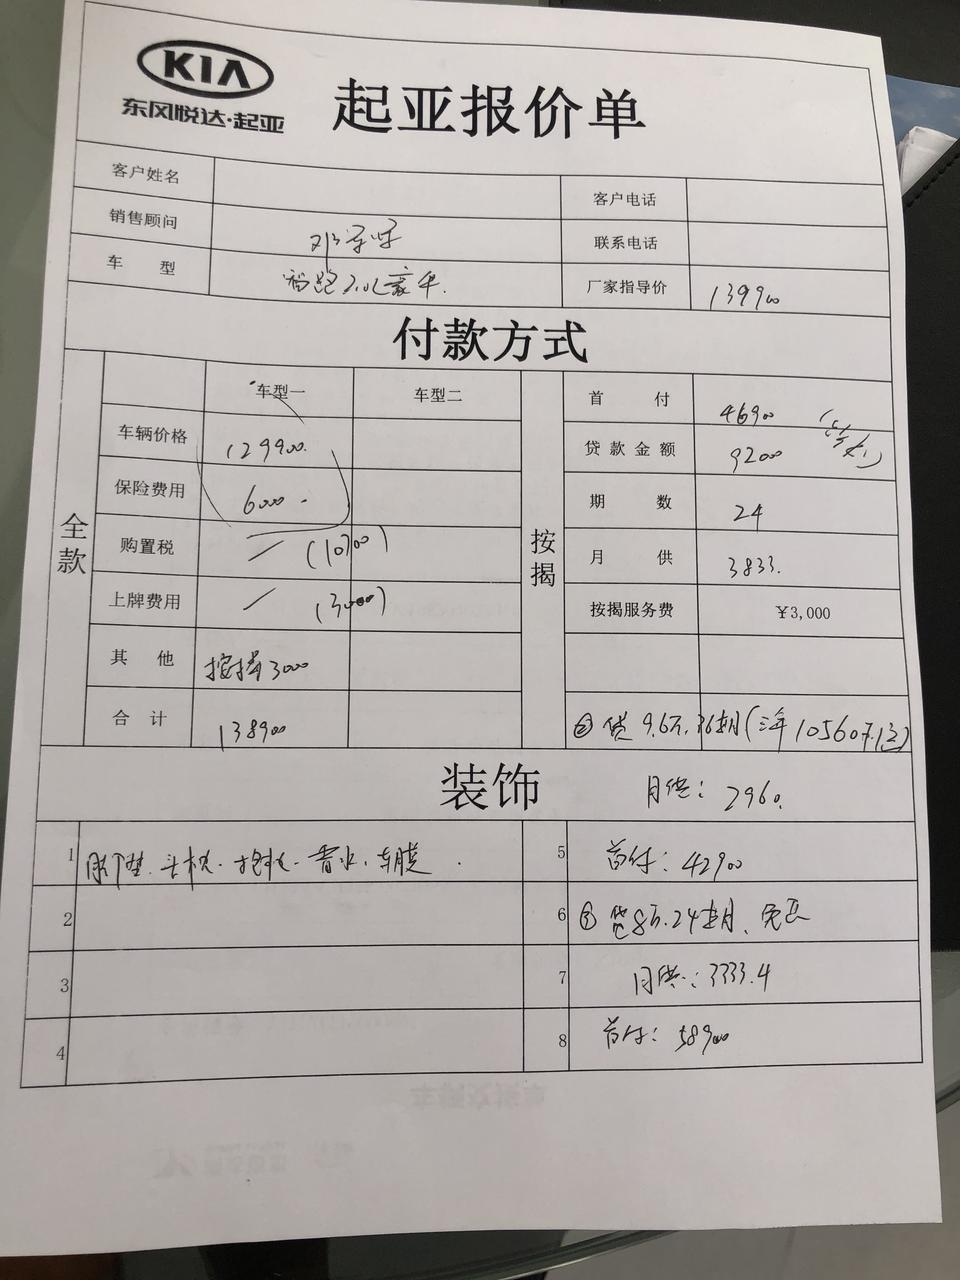 KIA
东风悦达·起亚
起亚报价单
客户姓名 客户电话
销售顾问 联系电话
车 型 智跑2.0L豪华. 厂家指导价 139900
付款方式
全款 车型一 车型二 按揭 首 付 46900
车辆价格 129900. 贷款金额 9200
保险费用 6000. 期 数 24
购置税 / (10700) 月 供 3833.
上牌费用 / (3000) 按揭服务费 ¥3,000
其 他 按揭3000
合 计 138900 ② 贷 9.6万.36期(三年10560
装饰 月供: 2960.
1 脚垫. 头枕. 抱枕. 香水. 车膜. 5 首付: 42900
2 6 ③ 贷8万.24期、免息
3 7 月供: 3333.4
4 8 首付: 58900